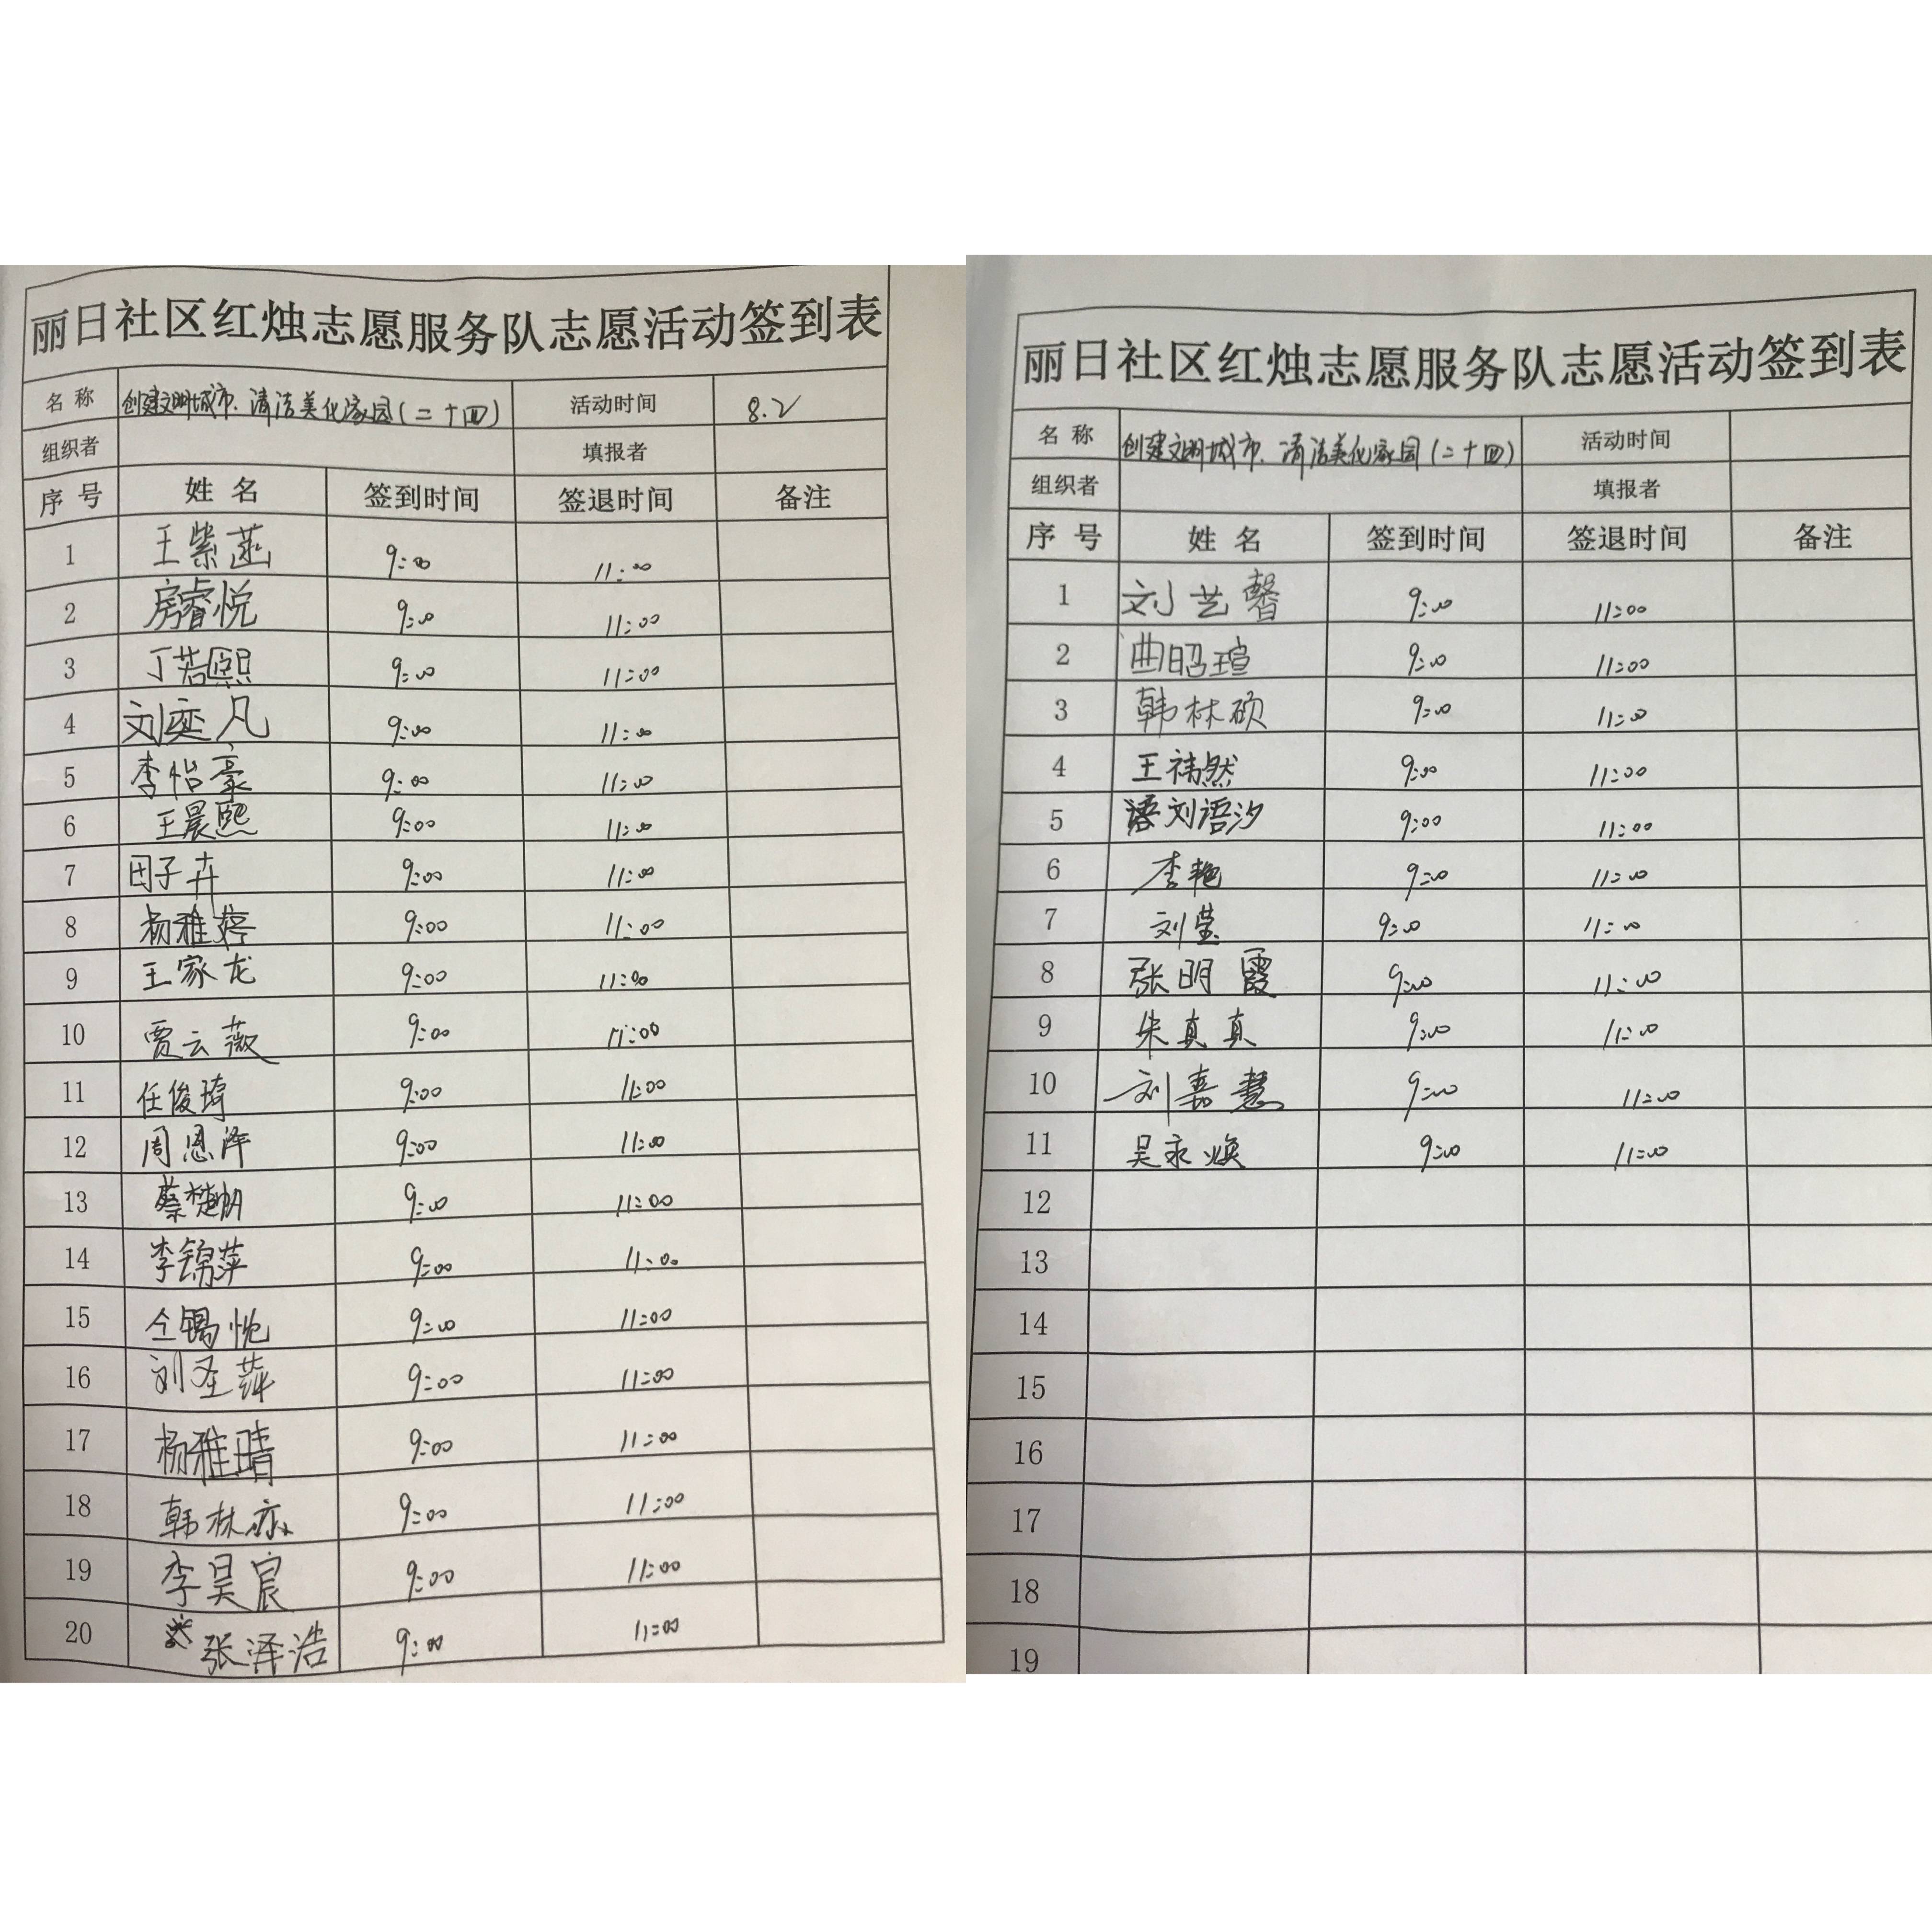 丽日社区红烛志愿服务队志愿活动签到表
名称 创建文明城市、清洁美化家园(二十四) 活动时间 8.2
组织者 填报者
序号 姓名 签到时间 签退时间 备注
1 王紫菡 9:00 11:00
2 房睿悦 9:00 11:00
3 丁若熙 9:00 11:00
4 刘奕凡 9:00 11:00
5 李怡豪 9:00 11:00
6 王晨熙 9:00 11:00
7 田子卉 9:00 11:00
8 杨雅婷 9:00 11:00
9 王家龙 9:00 11:00
10 贾云薇 9:00 11:00
11 任俊琦 9:00 11:00
12 周恩泽 9:00 11:00
13 蔡楚明 9:00 11:00
14 李锦萍 9:00 11:00
15 仝锡忱 9:00 11:00
16 刘圣萍 9:00 11:00
17 杨雅晴 9:00 11:00
18 韩林亦 9:00 11:00
19 李昊宸 9:00 11:00
20 张泽浩 9:00 11:00
丽日社区红烛志愿服务队志愿活动签到表
名称 创建文明城市、清洁美化家园(二十四) 活动时间
组织者 填报者
序号 姓名 签到时间 签退时间 备注
1 刘艺馨 9:00 11:00
2 曲昭瑄 9:00 11:00
3 韩林硕 9:00 11:00
4 王祎然 9:00 11:00
5 刘语汐 9:00 11:00
6 李艳 9:00 11:00
7 刘莹 9:00 11:00
8 张明霞 9:00 11:00
9 朱真真 9:00 11:00
10 刘嘉慧 9:00 11:00
11 吴永焕 9:00 11:00
12
13
14
15
16
17
18
19